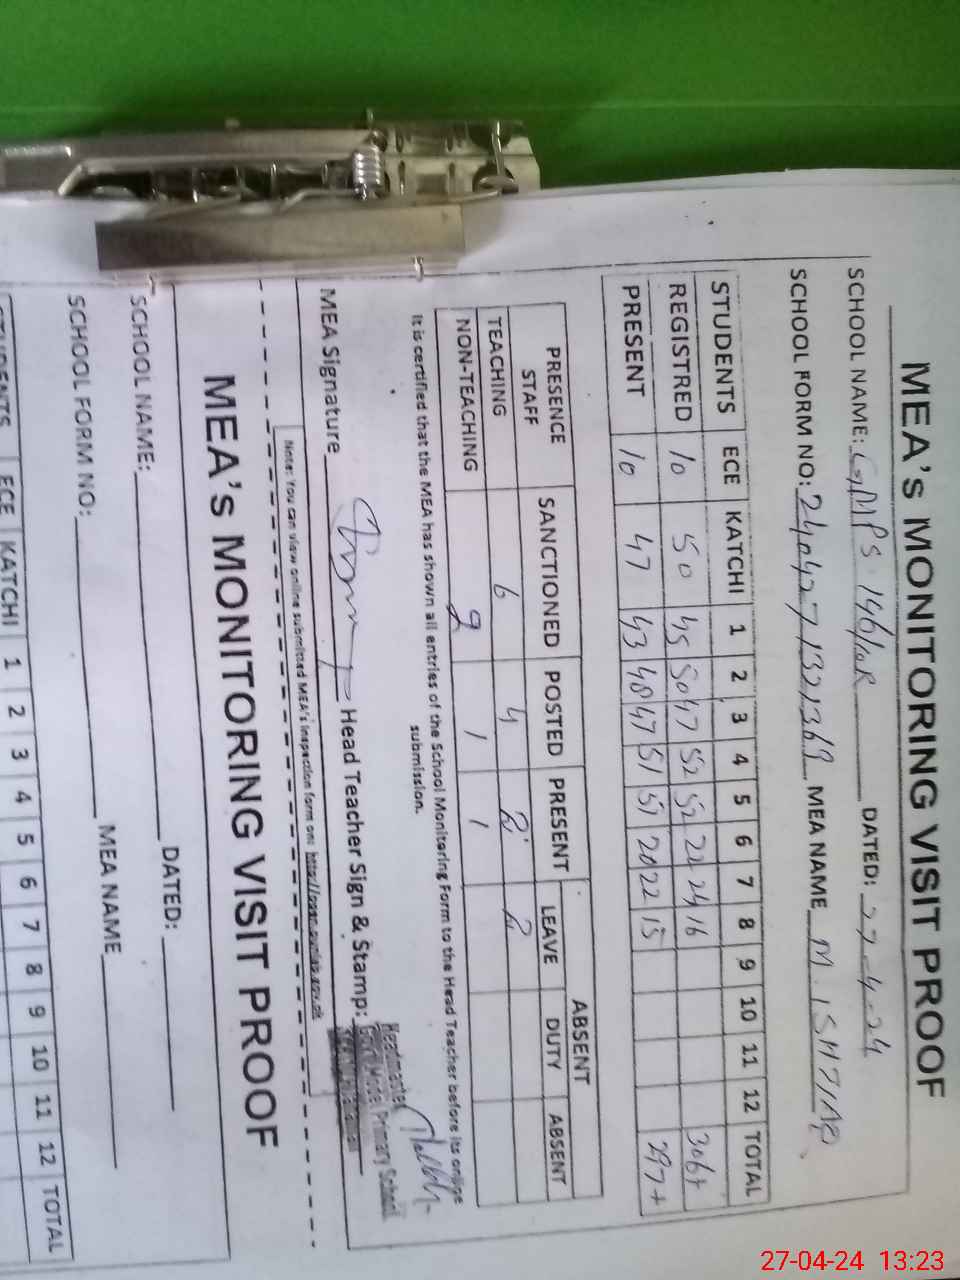 MEA's MONITORING VISIT PROOF
SCHOOL NAME: GMPS 146/10R DATED: 27-4-24
SCHOOL FORM NO: MEA NAME M. ISHTIAQ
STUDENTS ECE KATCHI 1 2 3 4 5 6 7 8 9 10 11 12 TOTAL
REGISTRED 10 50 45 50 47 52 52 22 24 16 306+
PRESENT 10 47 43 48 47 51 51 20 22 15 297+
PRESENCE STAFF SANCTIONED POSTED PRESENT ABSENT
LEAVE DUTY ABSENT
TEACHING 6 4 2 2
NON-TEACHING 2 1 1
It is certified that the MEA has shown all entries of the School Monitoring Form to the Head Teacher before its online
submission.
MEA Signature Head Teacher Sign & Stamp:
Headmaster
Govt. Model Primary School
Note: You can view online submitted MEA's inspection form on:
MEA's MONITORING VISIT PROOF
SCHOOL NAME: DATED:
SCHOOL FORM NO: MEA NAME
STUDENTS ECE KATCHI 1 2 3 4 5 6 7 8 9 10 11 12 TOTAL
27-04-24 13:23